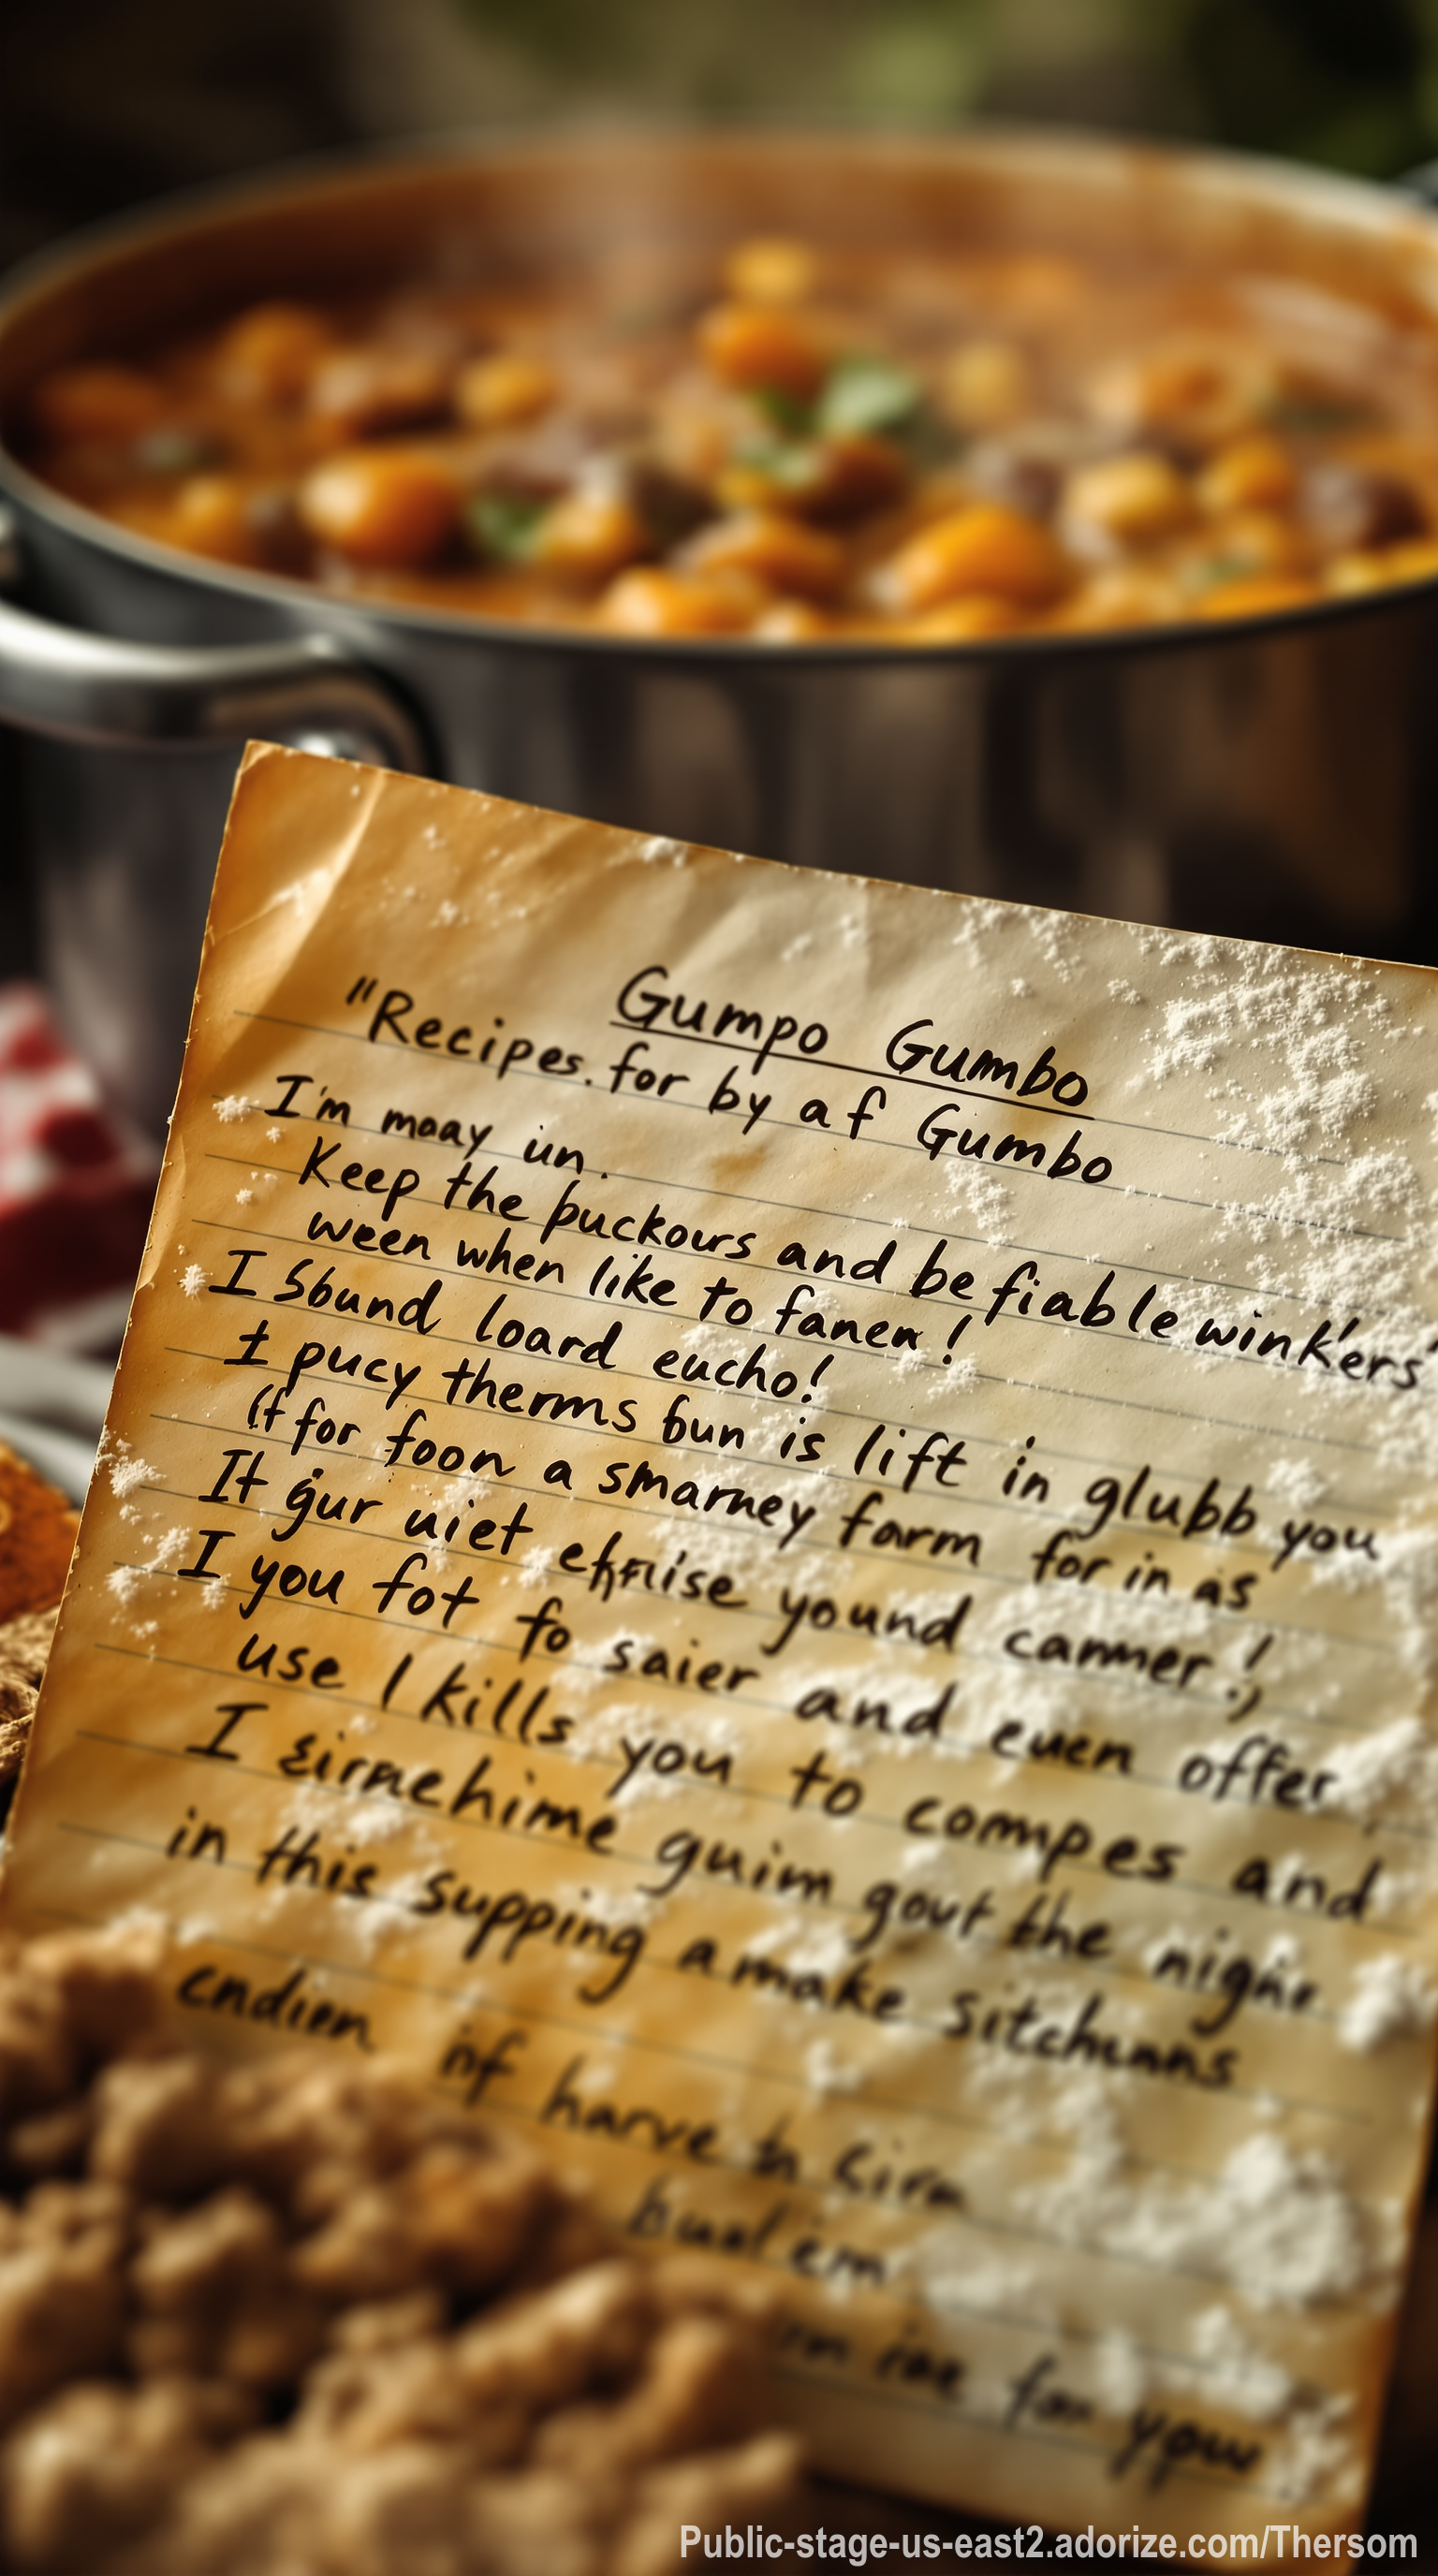 Gumpo Gumbo
"Recipes. for by af Gumbo
I'm maay un.
Keep the puckours and be fiable wink'ers'
ween when like to fanen!
I Sbund loard eucho!
I pucy therms bun is lift in glubb you
(f for foon a smarney farm for in as
It gur uiet efruise yound canmer!,
I you fot fo saier and euen offer,
use I kills you to compes and
I eirnehime guim gout the night
in this supping amake sitchunns
endien inf harve to
for your
Public-stage-us-east2.adorize.com/Thersom